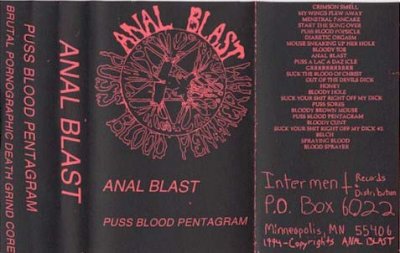 BRUTAL PORNOGRAPHIC DEATH GRIND CORE
PUSS BLOOD PENTAGRAM
ANAL BLAST
ANAL BLAST
PUSS BLOOD PENTAGRAM
ANAL BLAST
PUSS BLOOD PENTAGRAM
CRIMSON SMELL
MY WINGS FLEW AWAY
MENSTRAL PANCAKE
START THE SONG OVER
PUSS BLOOD POPSICLE
DIABETIC ORGASM
MOUSE SNEAKING UP HER HOLE
BLOODY TOE
ANAL BLAST
PUSS A LAC A DAZ ICLE
GRRRRRRRRRRR
SUCK THE BLOOD OF CHRIST
OUT OF THE DEVILS DICK
HONEY
BLOODY HOLE
SUCK YOUR SHIT RIGHT OFF MY DICK
PUSS SORES
BLOODY BROWN MOUSE
PUSS BLOOD PENTAGRAM
BLOODY CUNT
SUCK YOUR SHIT RIGHT OFF MY DICK #2
BELCH
SPRAYING BLOOD
BLOOD SPRAYER
Interment Records
Distribution
P.O. Box 6022
Minneapolis, MN 55406
1994-Copyrights ANAL BLAST